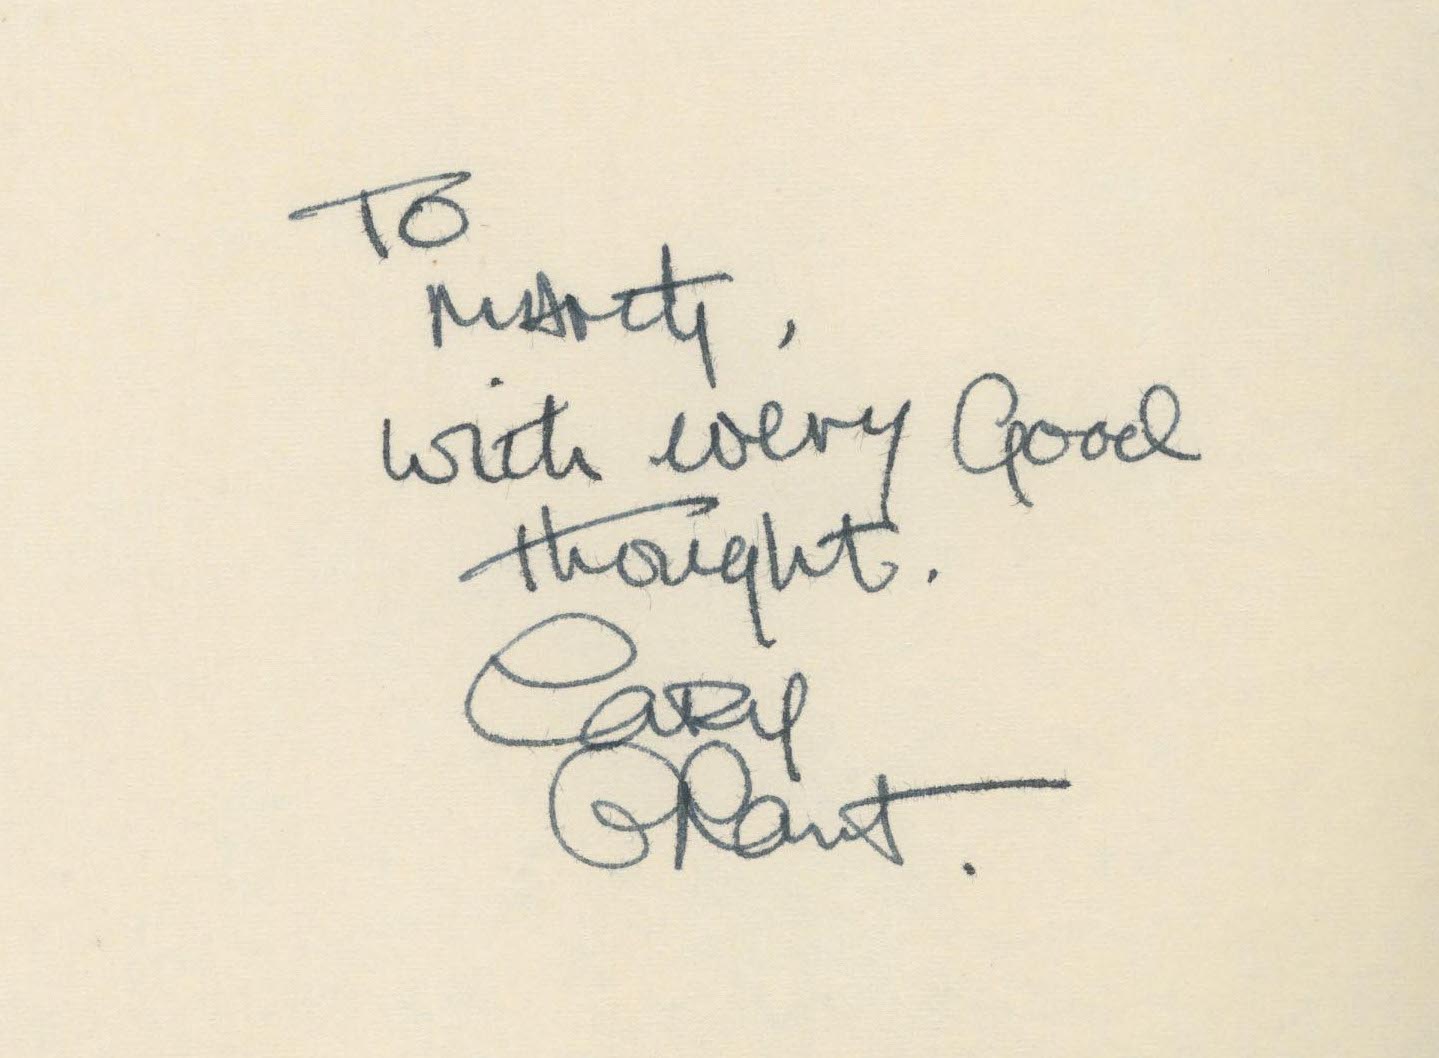 To
Marty,
with every Good
thought.
Cary
Grant.